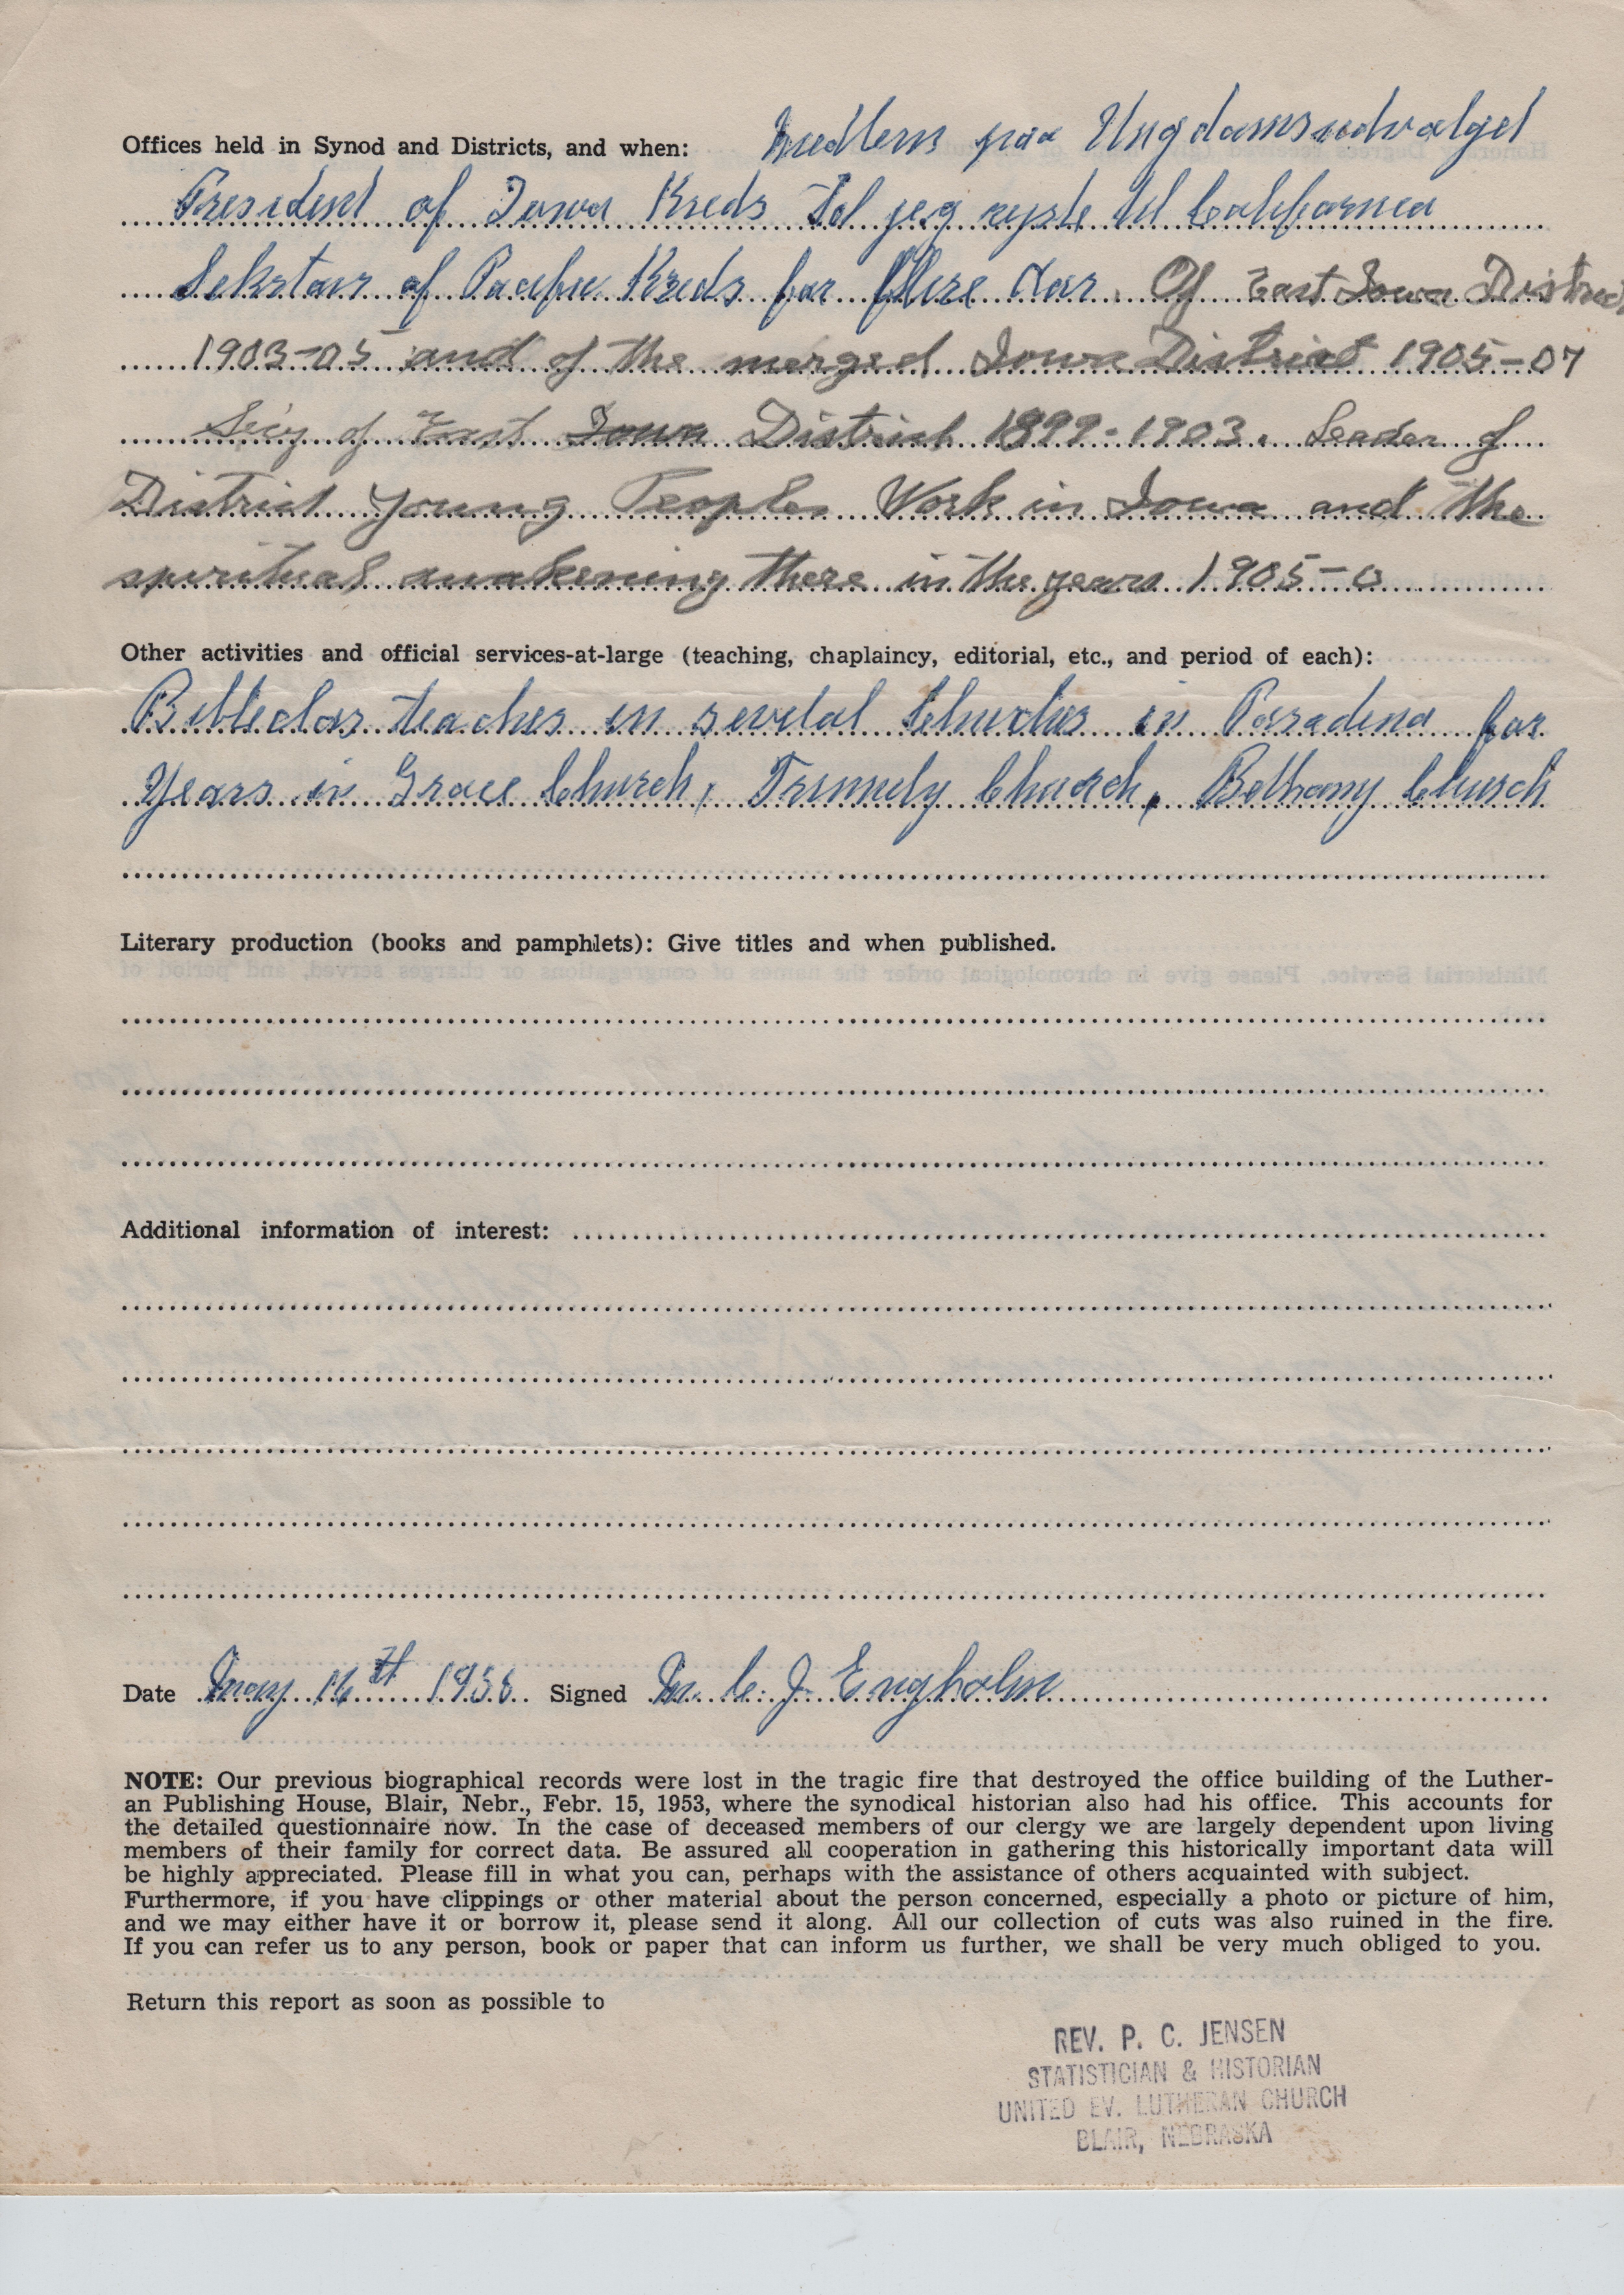 Offices held in Synod and Districts, and when: Medlem paa Ungdomsudvalget
President of Iowa Kreds Til jeg rejste til California
Sekretair of Pacific Kreds for flere Aar. Of East Iowa District
1903-05 and of the merged Iowa District 1905-07
Sec'y of East Iowa District 1899-1903. Leader of
District Young Peoples Work in Iowa and the
spiritual awakening there in the years 1905-
Other activities and official services-at-large (teaching, chaplaincy, editorial, etc., and period of each):
Bibleclas teacher in several Churches in Pasadena for
Years in Grace Church, Trinnity Church, Bethany Church
Literary production (books and pamphlets): Give titles and when published.
Additional information of interest:
Date May 16th Signed M. C. J. Engholm
NOTE: Our previous biographical records were lost in the tragic fire that destroyed the office building of the Luther-
an Publishing House, Blair, Nebr., Febr. 15, 1953, where the synodical historian also had his office. This accounts for
the detailed questionnaire now. In the case of deceased members of our clergy we are largely dependent upon living
members of their family for correct data. Be assured all cooperation in gathering this historically important data will
be highly appreciated. Please fill in what you can, perhaps with the assistance of others acquainted with subject.
Furthermore, if you have clippings or other material about the person concerned, especially a photo or picture of him,
and we may either have it or borrow it, please send it along. All our collection of cuts was also ruined in the fire.
If you can refer us to any person, book or paper that can inform us further, we shall be very much obliged to you.
Return this report as soon as possible to
REV. P. C. JENSEN
STATISTICIAN & HISTORIAN
UNITED EV. LUTHERAN CHURCH
BLAIR, NEBRASKA